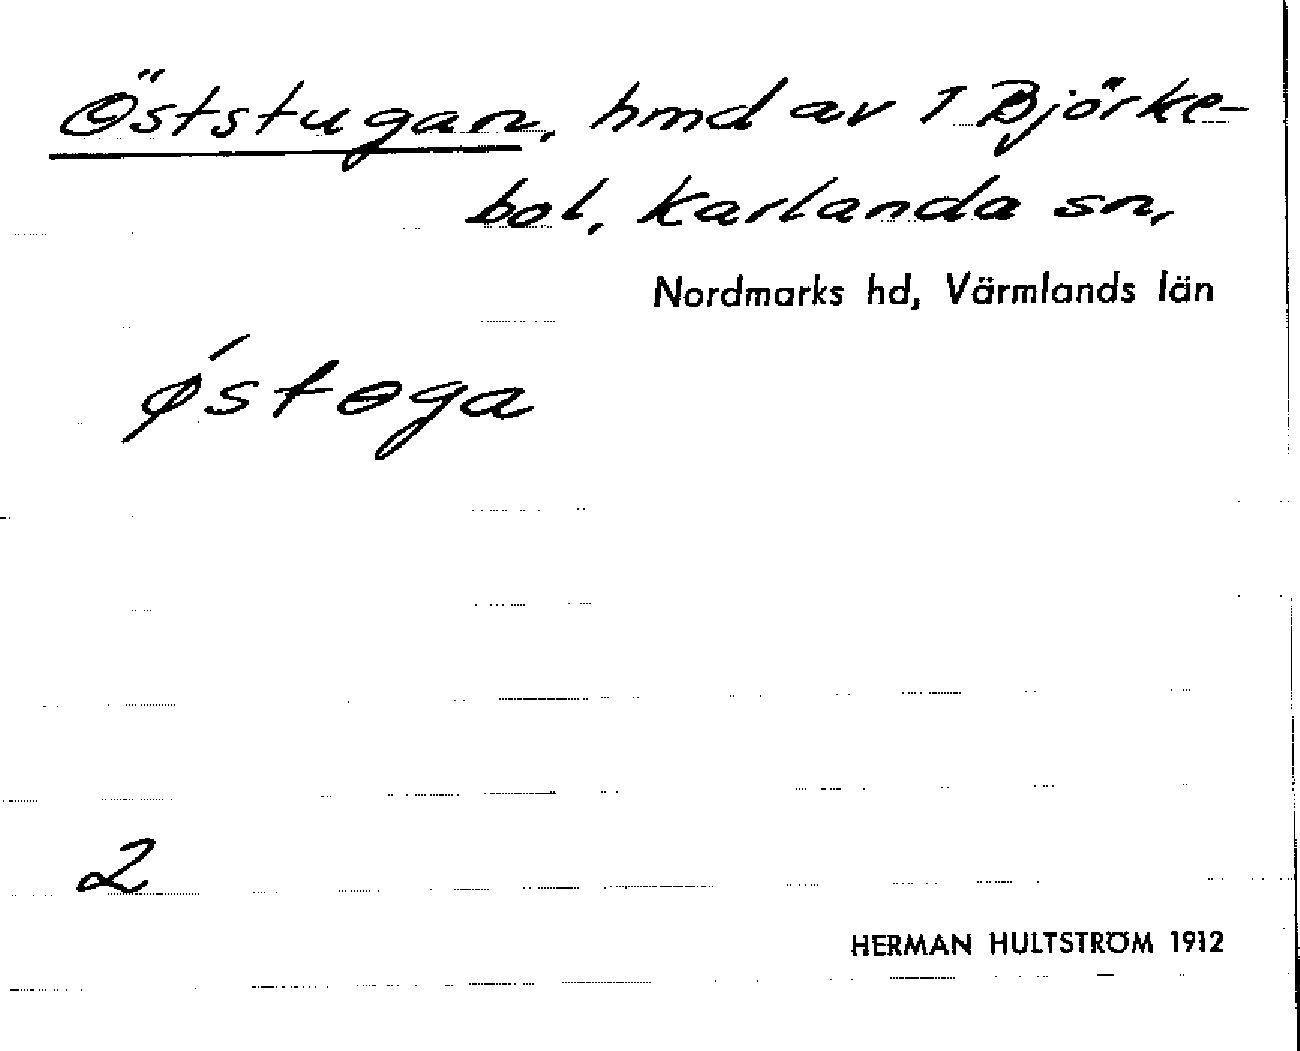 Öststugan, hmd av 1 Björke-
bol, Karlanda sn,
Nordmarks hd, Värmlands län
ǿstɵga
2
HERMAN HULTSTRÖM 1912